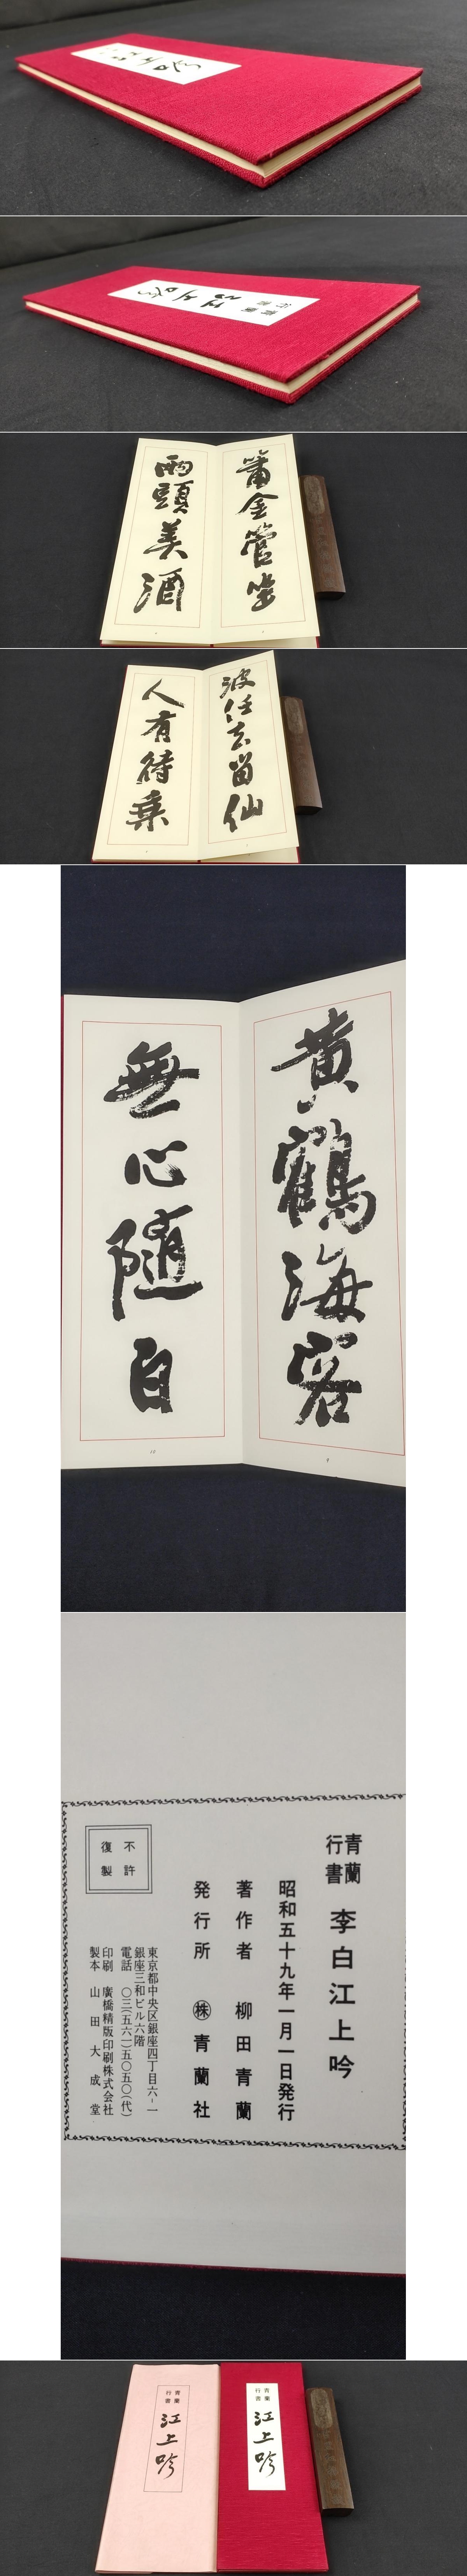 青蘭
行書
江上吟
簫金管坐
兩頭美酒
波任去留仙
人有待乗
黄鶴海客
9
無心随白
10
青蘭
行書
李白江上吟
昭和五十九年一月一日発行
著作者 柳田青蘭
発行所 ㈱青蘭社
東京都中央区銀座四丁目六-一
銀座三和ビル六階
電話 〇三(五六一)五〇五〇(代)
印刷 廣橋精版印刷株式会社
製本 山田大成堂
不許
復製
青蘭
行書
江上吟
青蘭
行書
江上吟